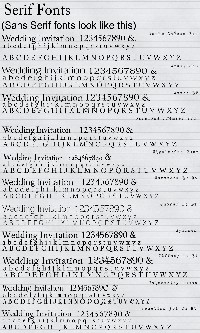 Serif Fonts
(Sans Serif fonts look like this)
Wedding Invitation 1234567890 &
a b c d e f g h i j k l m n o p q r s t u v w x y z
A B C D E F G H I J K L M N O P Q R S T U V W X Y Z
Wedding Invitation 1234567890 &
a b c d e f g h i j k l m n o p q r s t u v w x y z
A B C D E F G H I J K L M N O P Q R S T U V W X Y Z
Wedding Invitation 1234567890 &
a b c d e f g h i j k l m n o p q r s t u v w x y z
A B C D E F G H I J K L M N O P Q R S T U V W X Y Z
Wedding Invitation 1234567890 &
a b c d e f g h i j k l m n o p q r s t u v w x y z
A B C D E F G H I J K L M N O P Q R S T U V W X Y Z
Wedding Invitation 1234567890 &
a b c d e f g h i j k l m n o p q r s t u v w x y z
A B C D E F G H I J K L M N O P Q R S T U V W X Y Z
Wedding Invitation 1234567890 &
a b c d e f g h i j k l m n o p q r s t u v w x y z
A B C D E F G H I J K L M N O P Q R S T U V W X Y Z
Wedding Invitation 1234567890 &
a b c d e f g h i j k l m n o p q r s t u v w x y z
A B C D E F G H I J K L M N O P Q R S T U V W X Y Z
Wedding Invitation 1234567890 &
a b c d e f g h i j k l m n o p q r s t u v w x y z
A B C D E F G H I J K L M N O P Q R S T U V W X Y Z
Wedding Invitation 1234567890 &
a b c d e f g h i j k l m n o p q r s t u v w x y z
A B C D E F G H I J K L M N O P Q R S T U V W X Y Z
Wedding Invitation 1234567890 &
a b c d e f g h i j k l m n o p q r s t u v w x y z
A B C D E F G H I J K L M N O P Q R S T U V W X Y Z
Wedding Invitation 1234567890 &